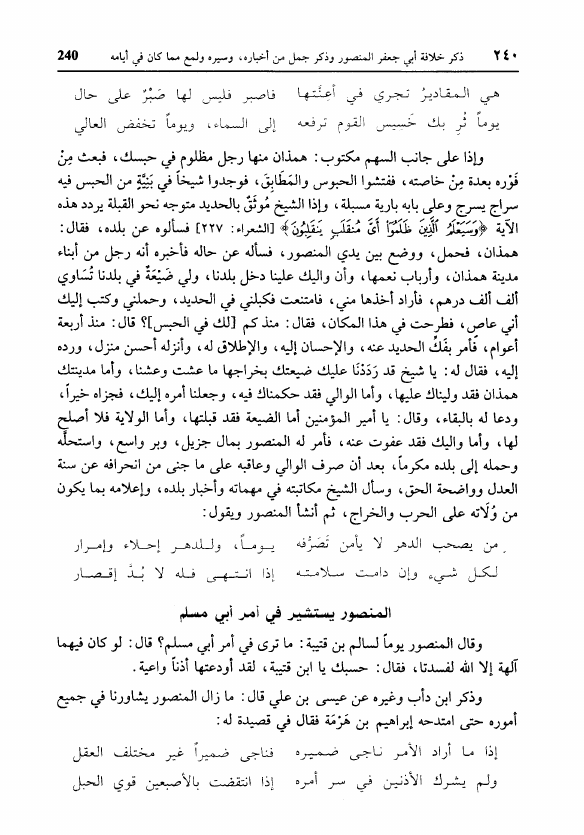 ٢٤٠ ذكر خلافة أبي جعفر المنصور وذكر جمل من أخباره، وسيره ولمع مما كان في أيامه 240
هي المقاديرُ تجري في أعِنَّتها فاصبر فليس لها صَبْرٌ على حال
يوماً تُرِ بك خَسيس القوم ترفعه إلى السماء، ويوماً تخفض العالي
وإذا على جانب السهم مكتوب: همذان منها رجل مظلوم في حبسك، فبعث مِنْ
فَوْره بعدة مِنْ خاصته، ففتشوا الحبوس والمَطَابِقَ، فوجدوا شيخاً في بَنِيَّةٍ من الحبس فيه
سراج يسرج وعلى بابه بارية مسبلة، وإذا الشيخ مُوثَقٌ بالحديد متوجه نحو القبلة يردد هذه
الآية ﴿وَسَيَعْلَمُ الَّذِينَ ظَلَمُوا أَيَّ مُنقَلَبٍ يَنقَلِبُونَ﴾ [الشعراء: ٢٢٧] فسألوه عن بلده، فقال:
همذان، فحمل، ووضع بين يدي المنصور، فسأله عن حاله فأخبره أنه رجل من أبناء
مدينة همذان، وأرباب نعمها، وأن واليك علينا دخل بلدنا، ولي ضَيْعَةٌ في بلدنا تُسَاوي
ألف ألف درهم، فأراد أخذها مني، فامتنعت فكبلني في الحديد، وحملني وكتب إليك
أني عاص، فطرحت في هذا المكان، فقال: منذ كم [لك في الحبس]؟ قال: منذ أربعة
أعوام، فأمر بفَكِّ الحديد عنه، والإحسان إليه، والإطلاق له، وأنزله أحسن منزل، ورده
إليه، فقال له: يا شيخ قد رَدَدْنَا عليك ضيعتك بخراجها ما عشت وعشنا، وأما مدينتك
همذان فقد وليناك عليها، وأما الوالي فقد حكمناك فيه، وجعلنا أمره إليك، فجزاه خيراً،
ودعا له بالبقاء، وقال: يا أمير المؤمنين أما الضيعة فقد قبلتها، وأما الولاية فلا أصلح
لها، وأما واليك فقد عفوت عنه، فأمر له المنصور بمال جزيل، وبر واسع، واستحلَّه
وحمله إلى بلده مكرماً، بعد أن صرف الوالي وعاقبه على ما جنى من انحرافه عن سنة
العدل وواضحة الحق، وسأل الشيخ مكاتبته في مهماته وأخبار بلده، وإعلامه بما يكون
من وُلَاته على الحرب والخراج، ثم أنشأ المنصور ويقول:
من يصحب الدهر لا يأمن تَصَرُّفه يوماً، وللدهر إحلاء وإمرار
لكل شيء وإن دامت سلامته إذا انتهى فله لا بُدَّ إقصار
المنصور يستشير في أمر أبي مسلم
وقال المنصور يوماً لسالم بن قتيبة: ما ترى في أمر أبي مسلم؟ قال: لو كان فيهما
آلهة إلا الله لفسدتا، فقال: حسبك يا ابن قتيبة، لقد أودعتها أذناً واعية.
وذكر ابن دأب وغيره عن عيسى بن علي قال: ما زال المنصور يشاورنا في جميع
أموره حتى امتدحه إبراهيم بن هَرْمَة فقال في قصيدة له:
إذا ما أراد الأمر ناجى ضميره فناجى ضميراً غير مختلف العقل
ولم يشرك الأذنين في سر أمره إذا انتقضت بالأصبعين قوي الحبل